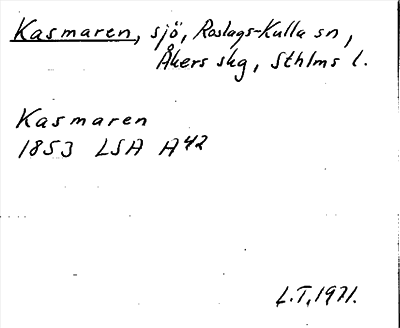 Kasmaren, sjö, Roslags-Kulla sn,
Åkers skg, Sthlms l.
Kasmaren
1853 LSA A42
L.T, 1971.